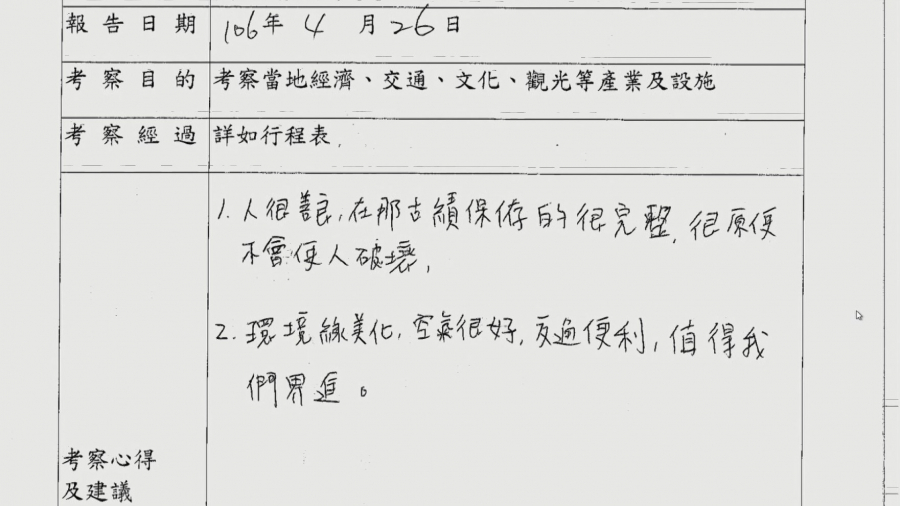 報告日期 106年 4 月26日
考察目的 考察當地經濟、交通、文化、觀光等產業及設施
考察經過 詳如行程表
1. 人很善良,在那古績保存的很完整,很原便
不會使人破壞,
2. 環境綠美化,空氣很好,交通便利,值得我
們界進。
考察心得
及建議